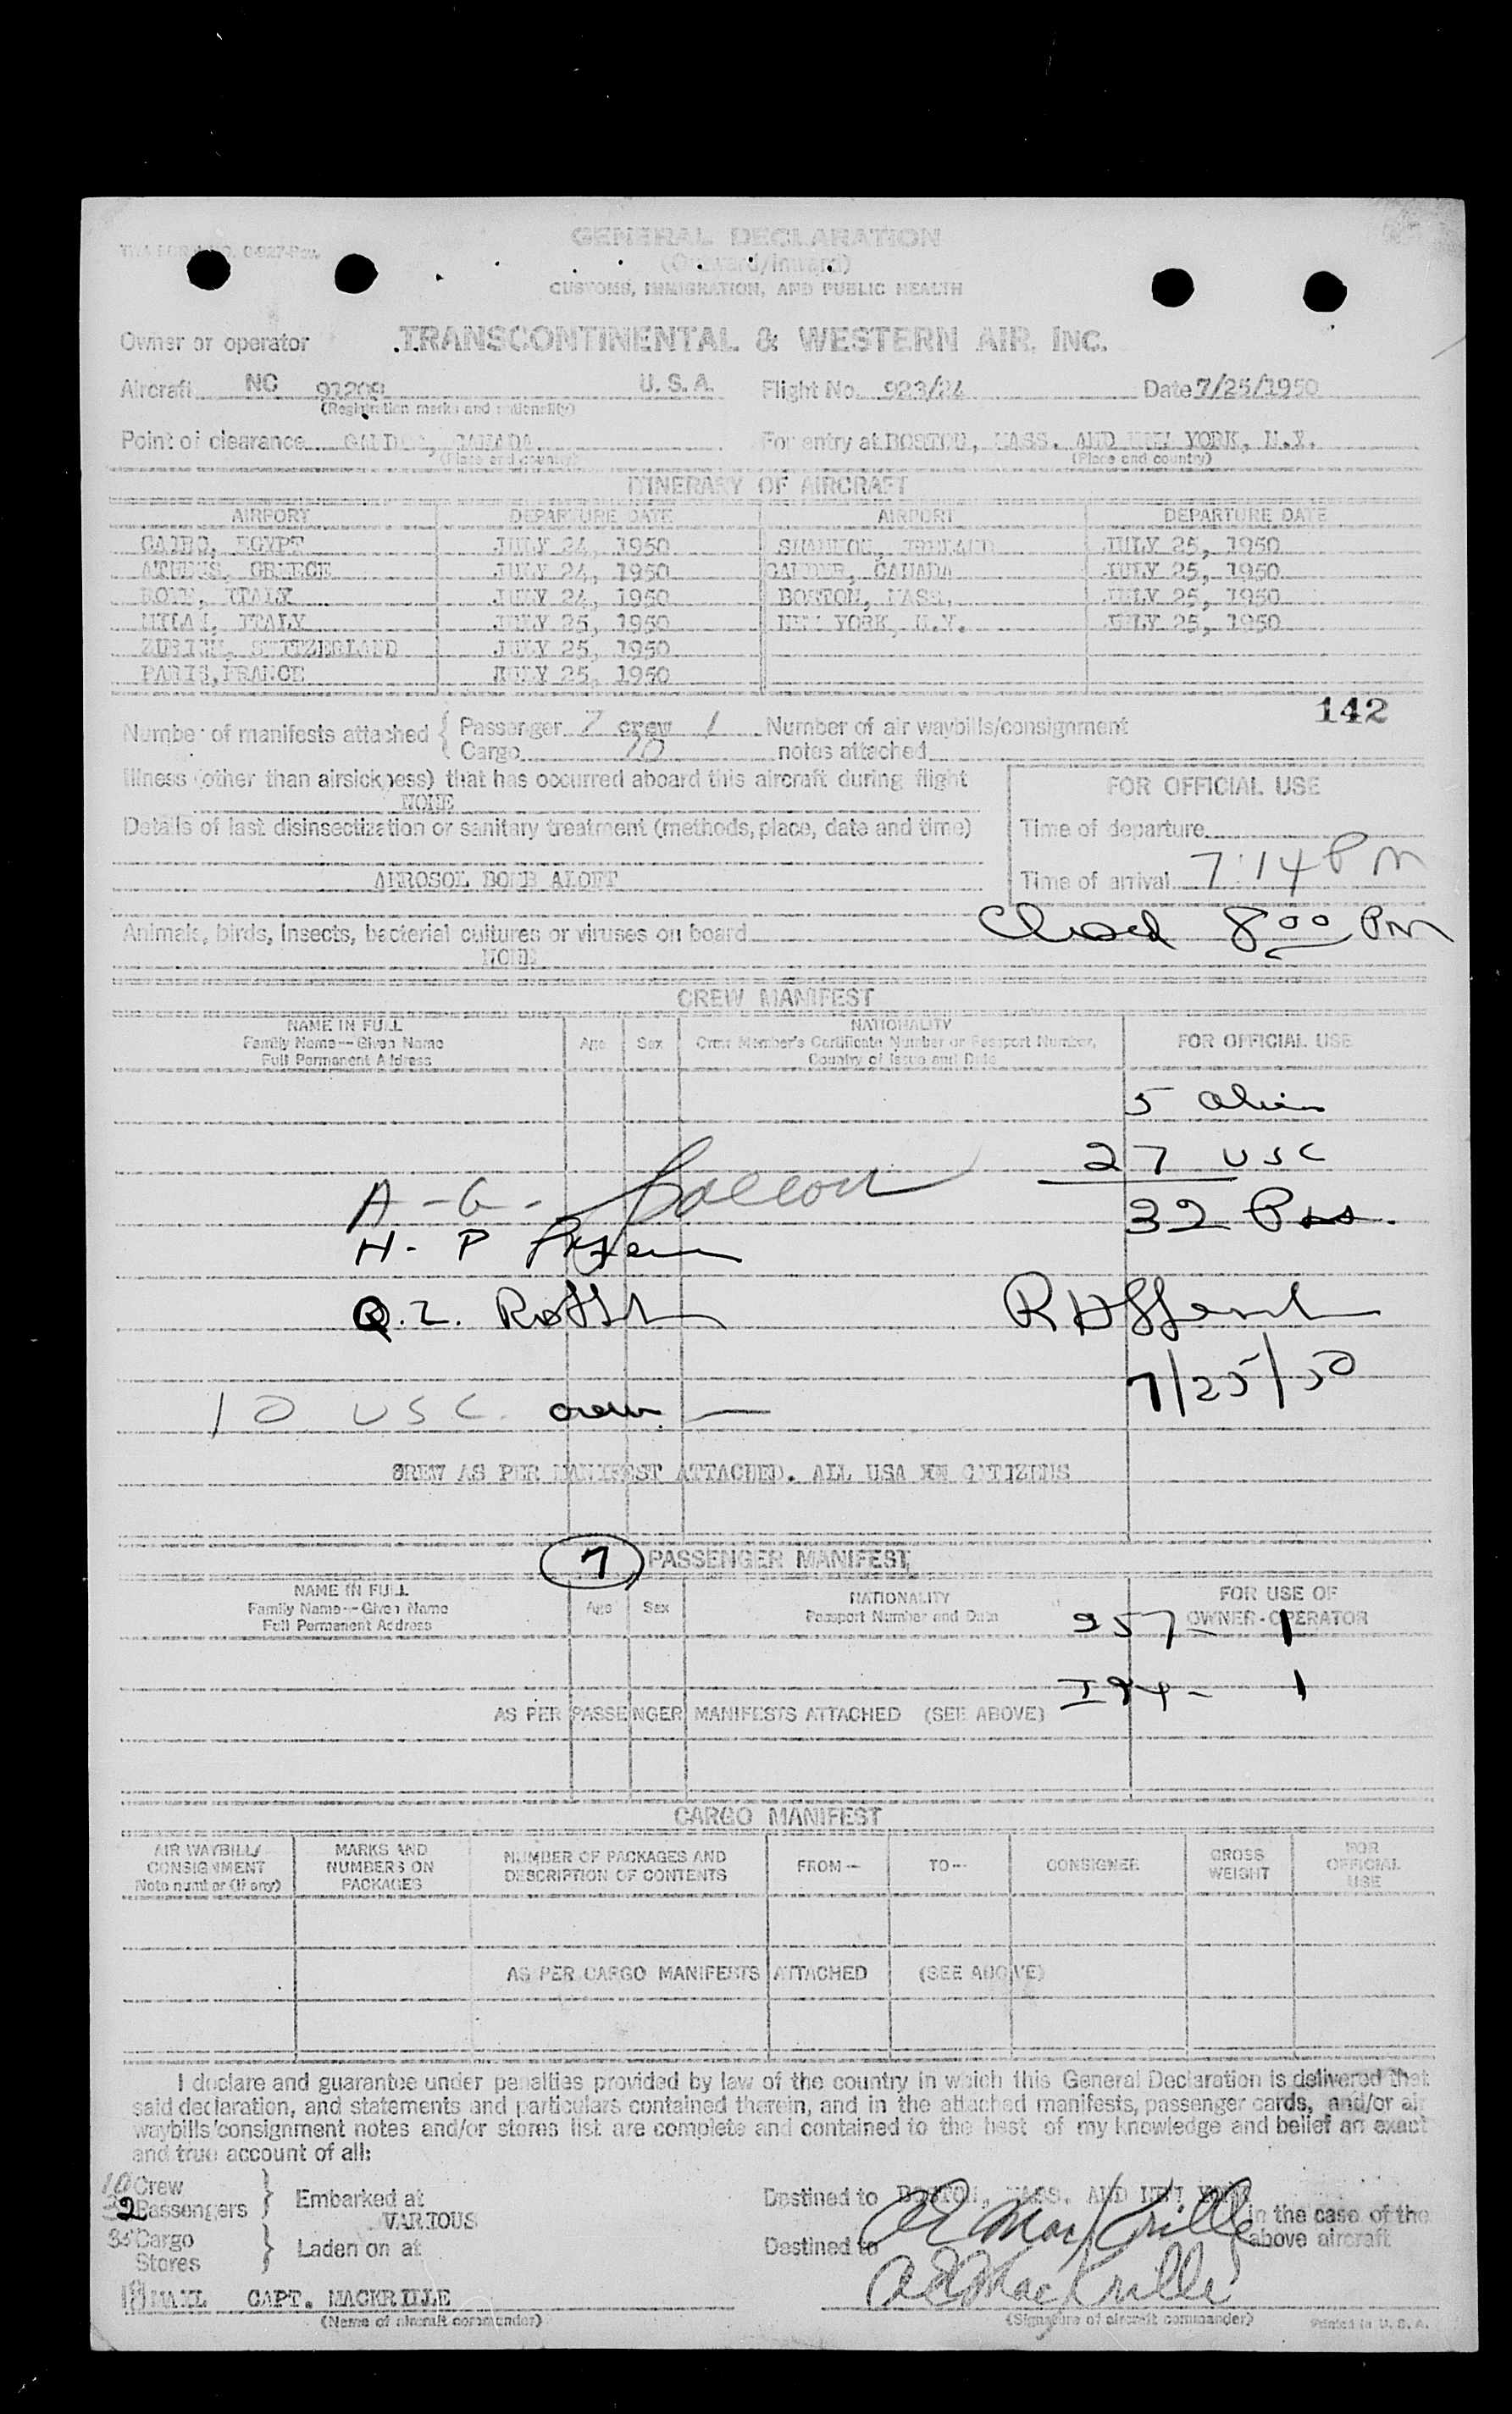 GENERAL DECLARATION
(Outward/Inward)
CUSTOMS, IMMIGRATION, AND PUBLIC HEALTH
Owner or operator TRANSCONTINENTAL & WESTERN AIR, INC.
Aircraft NC 91209 U.S.A. Flight No. 923/24 Date 7/25/1950
(Registration marks and nationality)
Point of clearance GANDER, CANADA For entry at BOSTON, MASS. AND NEW YORK, N.Y.
(Place and country) (Place and country)
ITINERARY OF AIRCRAFT
AIRPORT DEPARTURE DATE AIRPORT DEPARTURE DATE
CAIRO, EGYPT JULY 24, 1950 SHANNON, IRELAND JULY 25, 1950
ATHENS, GREECE JULY 24, 1950 GANDER, CANADA JULY 25, 1950
ROME, ITALY JULY 24, 1950 BOSTON, MASS. JULY 25, 1950
MILAN, ITALY JULY 25, 1950 NEW YORK, N.Y. JULY 25, 1950
ZURICH, SWITZERLAND JULY 25, 1950
PARIS, FRANCE JULY 25, 1950
142
Number of manifests attached { Passenger 7 crew 1 Number of air waybills/consignment
Cargo 10 notes attached
Illness (other than airsickness) that has occurred aboard this aircraft during flight
NONE
FOR OFFICIAL USE
Details of last disinsectization or sanitary treatment (methods, place, date and time)
Time of departure
AIROSOL BOMB ALOFT
Time of arrival 7:14 PM
Closed 8:00 PM
Animals, birds, insects, bacterial cultures or viruses on board
NONE
CREW MANIFEST
NAME IN FULL NATIONALITY
Family Name--Given Name Age Sex Crew Member's Certificate Number or Passport Number, FOR OFFICIAL USE
Full Permanent Address Country of Issue and Date
5 alien
27 USC
A-G-
32 Pass.
H-P
Q.L.
7/25/50
10 USC. crew —
CREW AS PER MANIFEST ATTACHED. ALL USA CITIZENS
7 PASSENGER MANIFEST
NAME IN FULL NATIONALITY FOR USE OF
Family Name--Given Name Age Sex Passport Number and Date OWNER-OPERATOR
Full Permanent Address
257- 1
I94- 1
AS PER PASSENGER MANIFESTS ATTACHED (SEE ABOVE)
CARGO MANIFEST
AIR WAYBILL/ MARKS AND NUMBER OF PACKAGES AND FROM-- TO-- CONSIGNEE GROSS FOR
CONSIGNMENT NUMBERS ON DESCRIPTION OF CONTENTS WEIGHT OFFICIAL
Note number (if any) PACKAGES USE
AS PER CARGO MANIFESTS ATTACHED (SEE ABOVE)
I declare and guarantee under penalties provided by law of the country in which this General Declaration is delivered that
said declaration, and statements and particulars contained therein, and in the attached manifests, passenger cards, and/or air
waybills/consignment notes and/or stores list are complete and contained to the best of my knowledge and belief an exact
and true account of all:
10 Crew
Passengers } Embarked at Destined to BOSTON, MASS. AND NEW YORK in the case of the
VARIOUS
A E MacKrille
35 Cargo } Laden on at Destined to above aircraft
Stores
A E MacKrille
MAIL CAPT. MACKRILLE
(Name of aircraft commander) (Signature of aircraft commander) Printed in U.S.A.